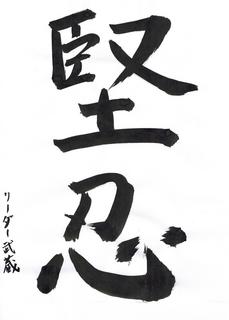 堅忍
リーダー武蔵